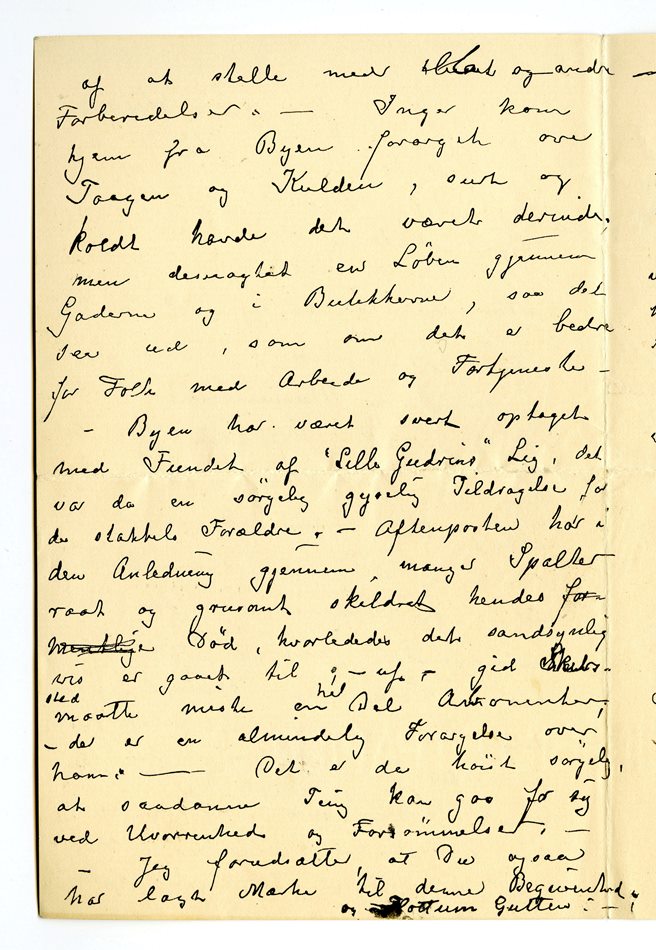 af at stelle med og andre
Forberedelser. —  Inger kom
hjem fra Byen forarget over
Taagen og Kulden, surt og
koldt havde det været derinde,
men desuagtet en Løben gjennem
Gaderne og i Butikkerne, saa det
ser ud, som om det er bedre
for Folk med Arbeide og Fortjeneste –
– Byen har været svert optaget
med Fundet af "Lille Gudruns" Lig, det
var da en sørgelig gyselig Tildragelse for
de stakkels Forældre. – Aftenposten har i
den Anledning gjennem mange Spalter
raat og grusomt skildret hendes for-
mentlige Død, hvorledes det sandsynlig
vis er gaaet til, – uf, – gid
maatte miste en hel Del Abonnenter,
– der er en almindelig Forargelse over
ham. — Det er da høist sørgelig,
at saadanne Ting kan gaa for sig
ved Uvorrenhed og Forsømmelse. –
– Jeg forudsætter, at Du ogsaa
har lagt Mærke til denne Begivenhed
og Gutten. –